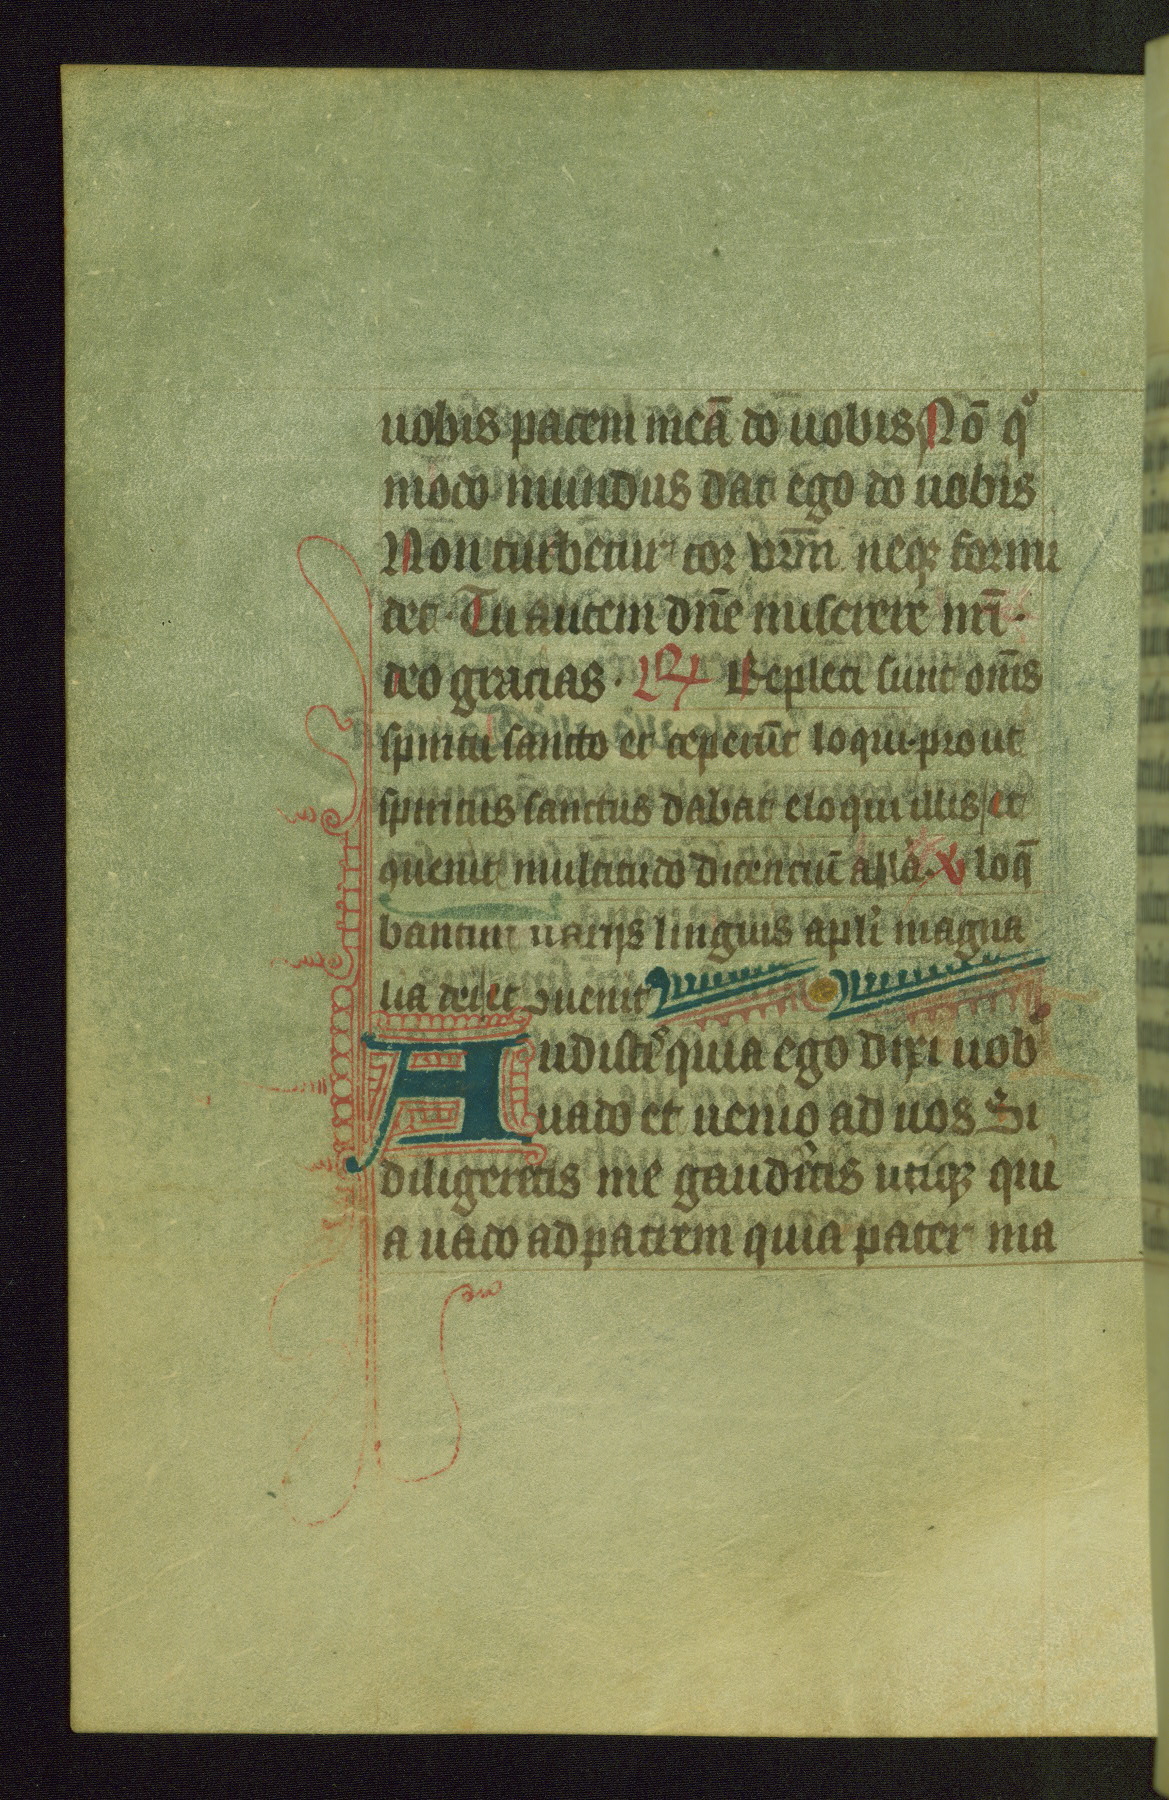 uobis pacem meā do uobis Nō qͦ
modo mundus dat ego do uobis
Non turbetur cor vr̄m neqꝫ formi
det · Tu autem dn̄e miserere m̄i ·
deo gracias · Repleti sunt om̄s
spiritu sancto et ceperūt loqui prout
spiritus sanctus dabat eloqui illis et
9uenit multitudo dicenciū all̄a · V loq̄
bantur uarijs linguis apl̄i magna
lia dei et 9uenit
Audistis quia ego dixi uob
uado et uenio ad uos Si
diligeretis me gauderetis utiqꝫ qui
a uado ad patrem quia pater ma